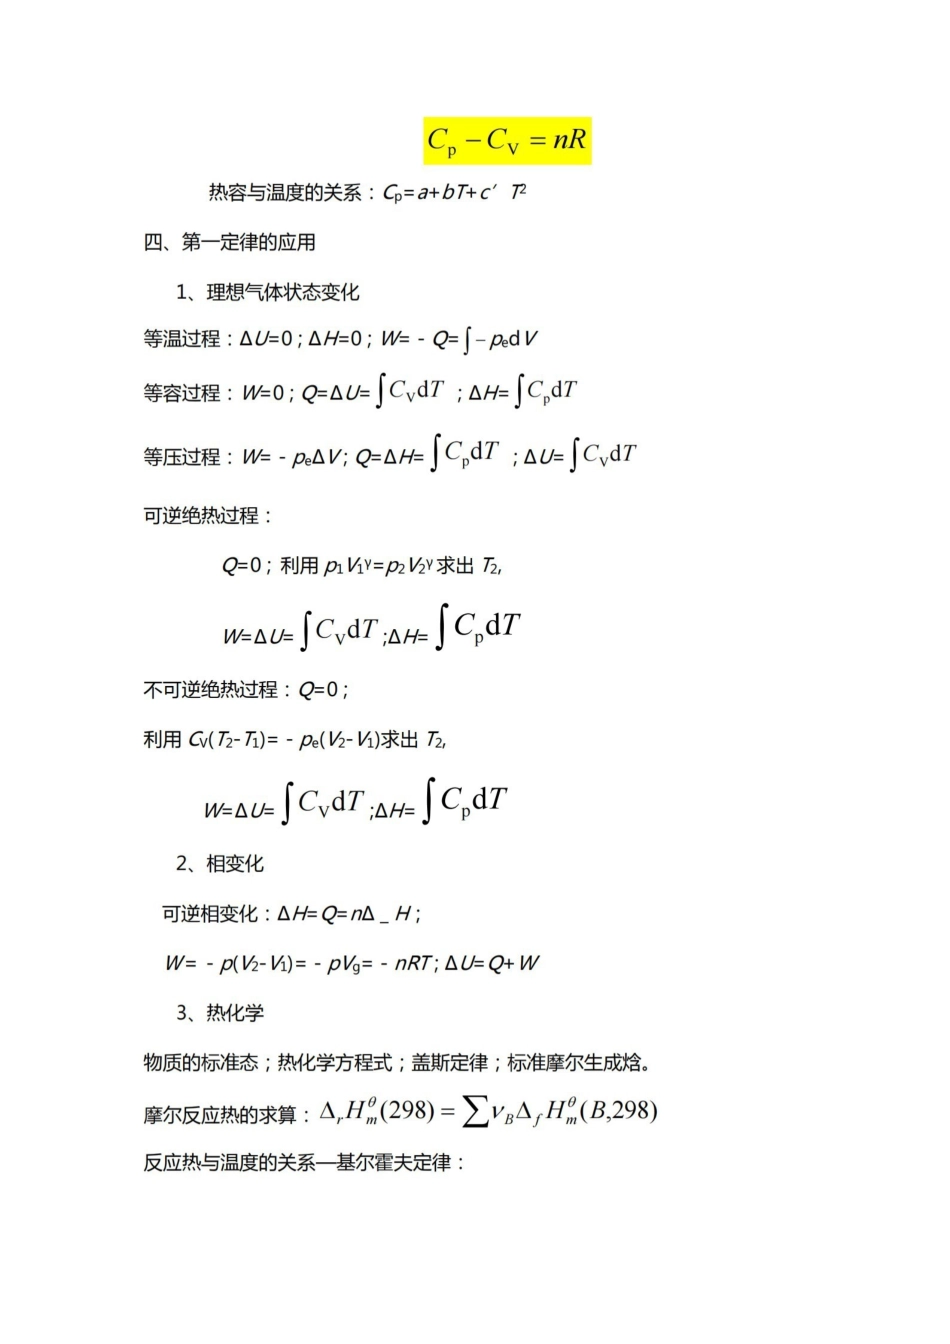 C_p − C_V = nR
热容与温度的关系：Cp=a+bT+c′T²
四、第一定律的应用
1、理想气体状态变化
等温过程：ΔU=0；ΔH=0；W=－Q=∫−p_e dV
等容过程：W=0；Q=ΔU=∫C_V dT；ΔH=∫C_p dT
等压过程：W=－p_eΔV；Q=ΔH=∫C_p dT；ΔU=∫C_V dT
可逆绝热过程：
Q=0；利用 p₁V₁^γ=p₂V₂^γ 求出 T₂,
W=ΔU=∫C_V dT;ΔH=∫C_p dT
不可逆绝热过程：Q=0；
利用 C_V(T₂-T₁)=－p_e(V₂-V₁)求出 T₂,
W=ΔU=∫C_V dT;ΔH=∫C_p dT
2、相变化
可逆相变化：ΔH=Q=nΔ_H；
W=－p(V₂-V₁)=－pV_g=－nRT；ΔU=Q+W
3、热化学
物质的标准态；热化学方程式；盖斯定律；标准摩尔生成焓。
摩尔反应热的求算：Δ_rH_m^θ(298)=∑ν_BΔ_fH_m^θ(B,298)
反应热与温度的关系—基尔霍夫定律：